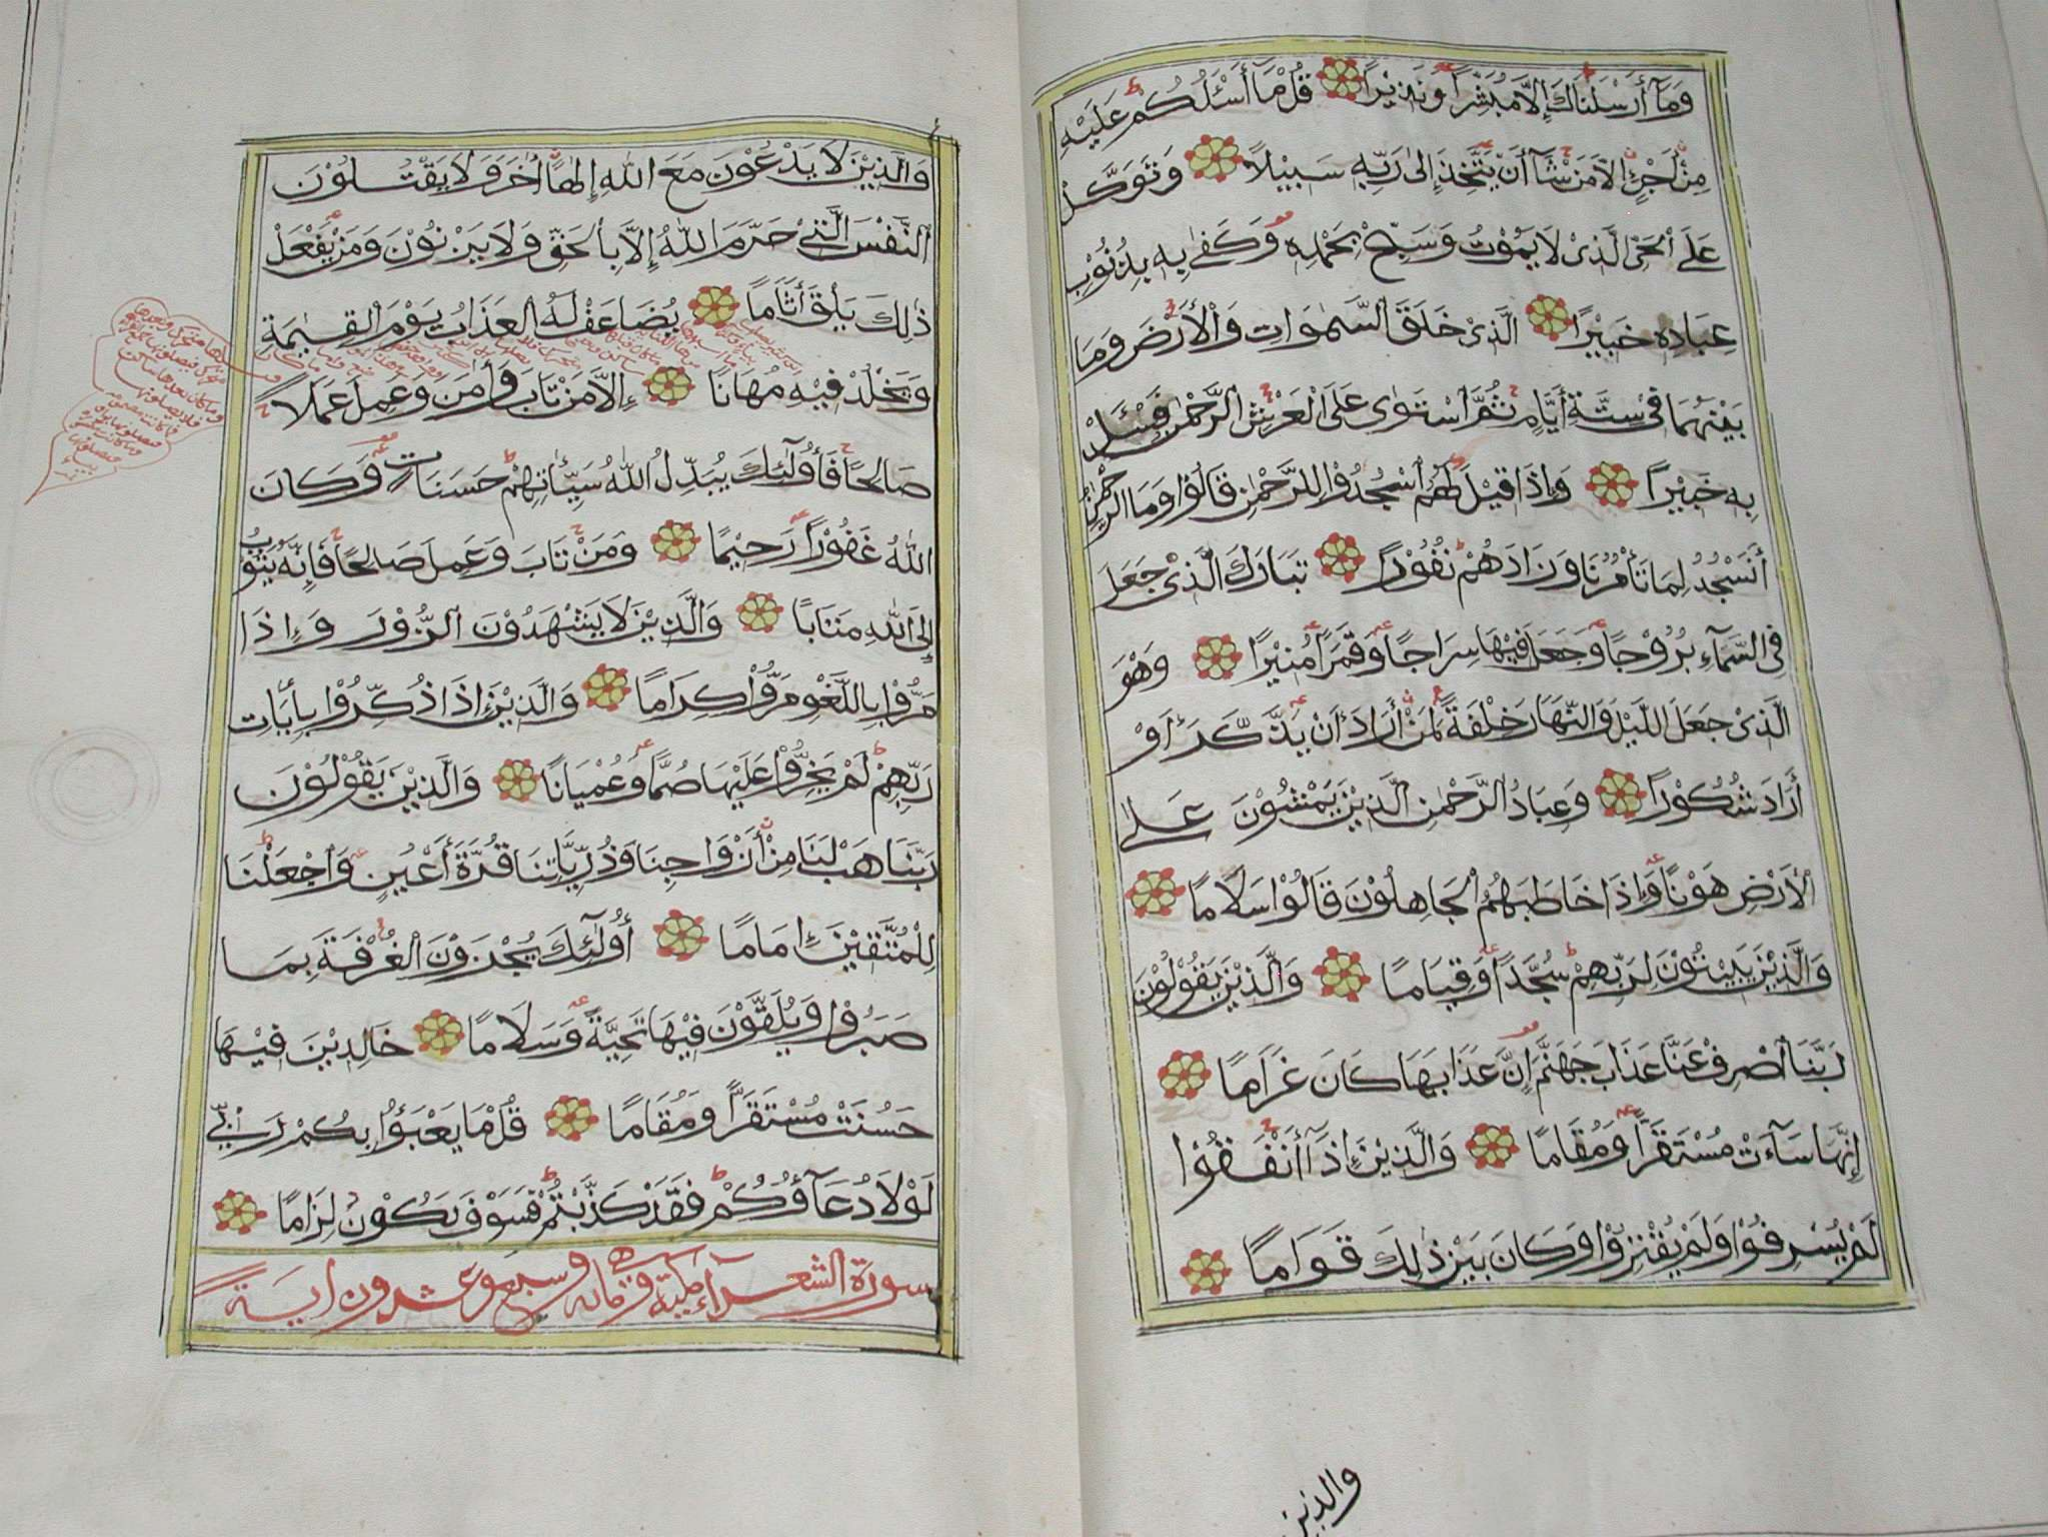 وَمَآ أَرْسَلْنَاكَ إِلَّا مُبَشِّرًا وَنَذِيْرًا قُلْ مَآ أَسْـَٔلُكُمْ عَلَيْهِ
مِنْ أَجْرٍ إِلَّا مَنْ شَآءَ أَنْ يَتَّخِذَ إِلٰى رَبِّهِ سَبِيْلًا وَتَوَكَّلْ
عَلَى الْحَيِّ الَّذِيْ لَا يَمُوْتُ وَسَبِّحْ بِحَمْدِهِ وَكَفٰى بِهِ بِذُنُوْبِ
عِبَادِهِ خَبِيْرًا الَّذِيْ خَلَقَ السَّمٰوَاتِ وَالْأَرْضَ وَمَا
بَيْنَهُمَا فِيْ سِتَّةِ أَيَّامٍ ثُمَّ اسْتَوٰى عَلَى الْعَرْشِ الرَّحْمٰنُ فَسْـَٔلْ
بِهِ خَبِيْرًا وَإِذَا قِيْلَ لَهُمُ اسْجُدُوْا لِلرَّحْمٰنِ قَالُوْا وَمَا الرَّحْمٰنُ
أَنَسْجُدُ لِمَا تَأْمُرُنَا وَزَادَهُمْ نُفُوْرًا تَبَارَكَ الَّذِيْ جَعَلَ
فِي السَّمَآءِ بُرُوْجًا وَجَعَلَ فِيْهَا سِرَاجًا وَقَمَرًا مُنِيْرًا وَهْوَ
الَّذِيْ جَعَلَ اللَّيْلَ وَالنَّهَارَ خِلْفَةً لِمَنْ أَرَادَ أَنْ يَذَّكَّرَ أَوْ
أَرَادَ شُكُوْرًا وَعِبَادُ الرَّحْمٰنِ الَّذِيْنَ يَمْشُوْنَ عَلَى
الْأَرْضِ هَوْنًا وَإِذَا خَاطَبَهُمُ الْجَاهِلُوْنَ قَالُوْا سَلَامًا
وَالَّذِيْنَ يَبِيْتُوْنَ لِرَبِّهِمْ سُجَّدًا وَقِيَامًا وَالَّذِيْنَ يَقُوْلُوْنَ
رَبَّنَا اصْرِفْ عَنَّا عَذَابَ جَهَنَّمَ إِنَّ عَذَابَهَا كَانَ غَرَامًا
إِنَّهَا سَآءَتْ مُسْتَقَرًّا وَمُقَامًا وَالَّذِيْنَ إِذَآ أَنْفَقُوْا
لَمْ يُسْرِفُوْا وَلَمْ يُقْتِرُوْا وَكَانَ بَيْنَ ذٰلِكَ قَوَامًا
والذين
وَالَّذِيْنَ لَا يَدْعُوْنَ مَعَ اللّٰهِ إِلٰهًا اٰخَرَ وَلَا يَقْتُلُوْنَ
النَّفْسَ الَّتِيْ حَرَّمَ اللّٰهُ إِلَّا بِالْحَقِّ وَلَا يَزْنُوْنَ وَمَنْ يَفْعَلْ
ذٰلِكَ يَلْقَ أَثَامًا يُضَاعَفْ لَهُ الْعَذَابُ يَوْمَ الْقِيٰمَةِ
وَيَخْلُدْ فِيْهِ مُهَانًا إِلَّا مَنْ تَابَ وَاٰمَنَ وَعَمِلَ عَمَلًا
صَالِحًا فَأُولٰٓئِكَ يُبَدِّلُ اللّٰهُ سَيِّـَٔاتِهِمْ حَسَنَاتٍ وَكَانَ
اللّٰهُ غَفُوْرًا رَحِيْمًا وَمَنْ تَابَ وَعَمِلَ صَالِحًا فَإِنَّهُ يَتُوْبُ
إِلَى اللّٰهِ مَتَابًا وَالَّذِيْنَ لَا يَشْهَدُوْنَ الزُّوْرَ وَإِذَا
مَرُّوْا بِاللَّغْوِ مَرُّوْا كِرَامًا وَالَّذِيْنَ إِذَا ذُكِّرُوْا بِاٰيَاتِ
رَبِّهِمْ لَمْ يَخِرُّوْا عَلَيْهَا صُمًّا وَعُمْيَانًا وَالَّذِيْنَ يَقُوْلُوْنَ
رَبَّنَا هَبْ لَنَا مِنْ أَزْوَاجِنَا وَذُرِّيَّاتِنَا قُرَّةَ أَعْيُنٍ وَاجْعَلْنَا
لِلْمُتَّقِيْنَ إِمَامًا أُولٰٓئِكَ يُجْزَوْنَ الْغُرْفَةَ بِمَا
صَبَرُوْا وَيُلَقَّوْنَ فِيْهَا تَحِيَّةً وَسَلَامًا خَالِدِيْنَ فِيْهَا
حَسُنَتْ مُسْتَقَرًّا وَمُقَامًا قُلْ مَا يَعْبَؤُا بِكُمْ رَبِّيْ
لَوْلَا دُعَآؤُكُمْ فَقَدْ كَذَّبْتُمْ فَسَوْفَ يَكُوْنُ لِزَامًا
سورة الشعرآء مكية وهي مائة وسبع وعشرون اية